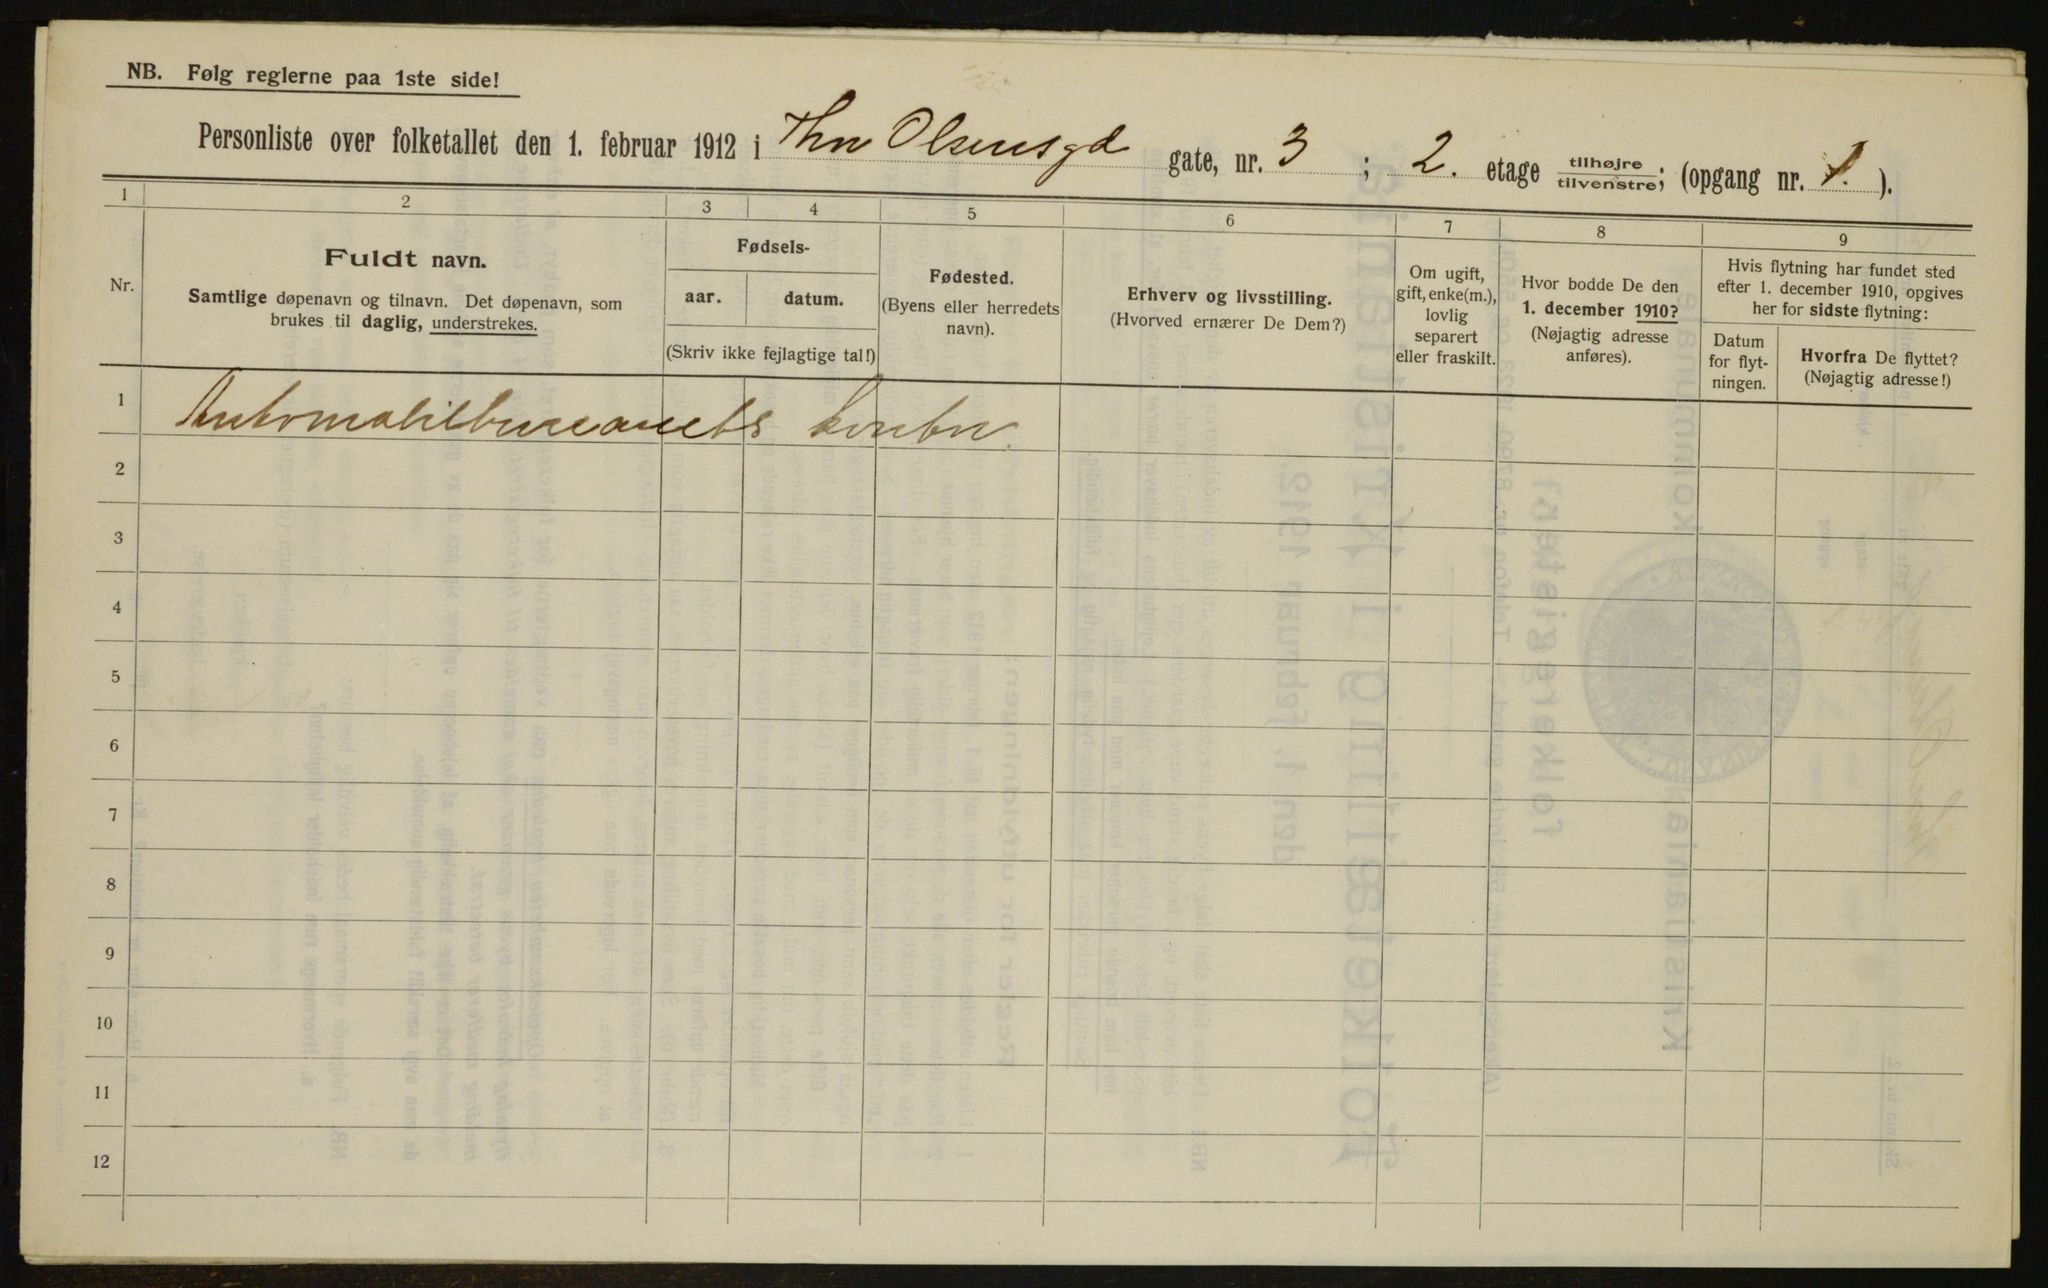 NB. Følg reglerne paa 1ste side!
Personliste over folketallet den 1. februar 1912 i Thv Olsensgd gate, nr. 3 ; 2. etage tilhøjre/tilvenstre; (opgang nr. 1. ).
1 2 3 4 5 6 7 8 9
Nr.
Fuldt navn.
Samtlige døpenavn og tilnavn. Det døpenavn, som
brukes til daglig, understrekes.
Fødsels-
aar. datum.
(Skriv ikke fejlagtige tal!)
Fødested.
(Byens eller herredets
navn).
Erhverv og livsstilling.
(Hvorved ernærer De Dem?)
Om ugift,
gift, enke(m.),
lovlig
separert
eller fraskilt.
Hvor bodde De den
1. december 1910?
(Nøjagtig adresse
anføres).
Hvis flytning har fundet sted
efter 1. december 1910, opgives
her for sidste flytning:
Datum
for flyt-
ningen.
Hvorfra De flyttet?
(Nøjagtig adresse!)
1 Automobilbureauets kontor.
2
3
4
5
6
7
8
9
10
11
12